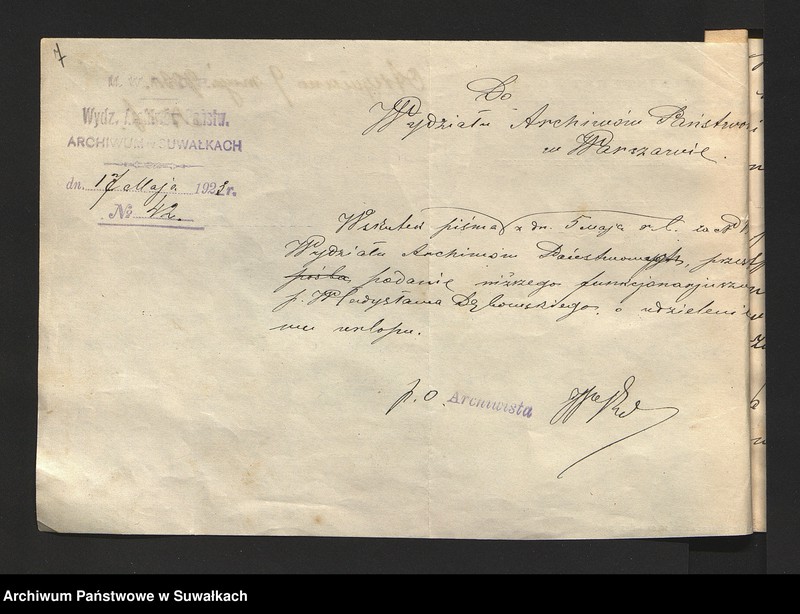 7
Wydz. Państw.
ARCHIWUM SUWAŁKACH
dn. 17 Maja 1923 r.
№ 42.
Do
Wydziału Archiwów Państwow
w Warszawie.
Wskutek piśma z dn. 5 maja r.b. za №
Wydziału Archiwów Państwowych,
podanie niższego funkcjonarjusza
p. Władysława Dąbowskiego, o udzieleni
mu urlopu.
p.o. Archiwista
Archiwum Państwowe w Suwałkach